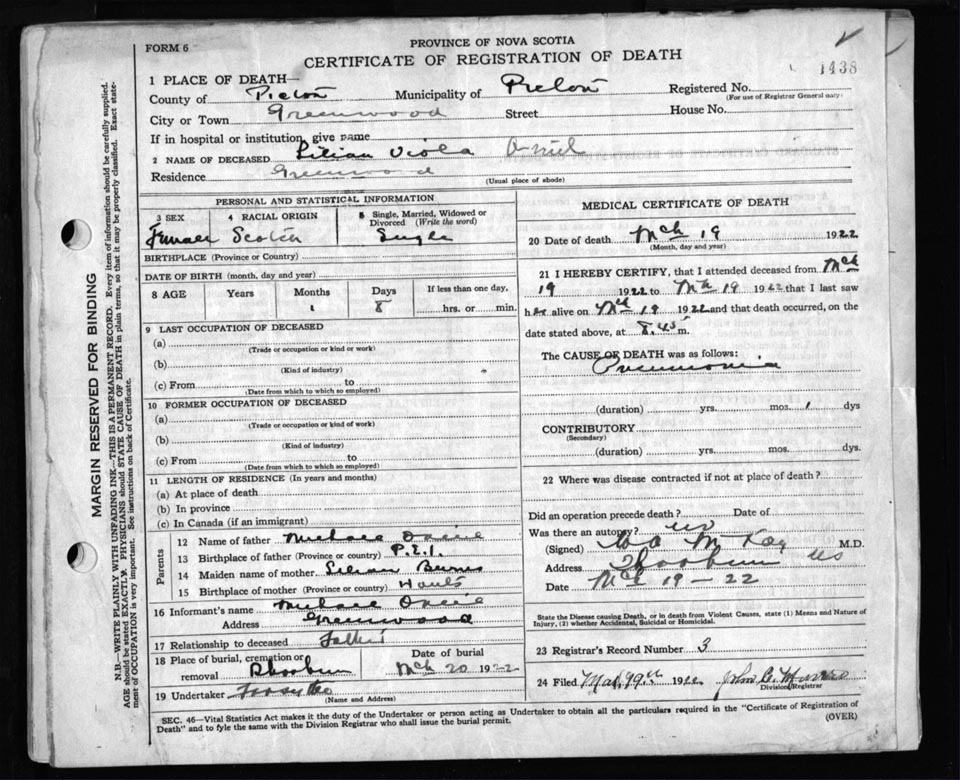 FORM 6
PROVINCE OF NOVA SCOTIA
CERTIFICATE OF REGISTRATION OF DEATH
1438
1 PLACE OF DEATH—
County of Pictou Municipality of Pictou Registered No.
(For use of Registrar General only)
City or Town Greenwood Street House No.
If in hospital or institution, give name
2 NAME OF DECEASED Lilian Viola O'niel
Residence Greenwood
(Usual place of abode)
PERSONAL AND STATISTICAL INFORMATION
3 SEX 4 RACIAL ORIGIN 5 Single, Married, Widowed or Divorced (Write the word)
Female Scotch Single
BIRTHPLACE (Province or Country)
DATE OF BIRTH (month, day and year)
8 AGE Years Months Days If less than one day,
1 8 hrs. or min.
9 LAST OCCUPATION OF DECEASED
(a)
(Trade or occupation or kind or work)
(b)
(Kind of industry)
(c) From to
(Date from which to which so employed)
10 FORMER OCCUPATION OF DECEASED
(a)
(Trade or occupation or kind of work)
(b)
(Kind of industry)
(c) From to
(Date from which to which so employed)
11 LENGTH OF RESIDENCE (In years and months)
(a) At place of death
(b) In province
(c) In Canada (if an immigrant)
Parents
12 Name of father Michael
13 Birthplace of father (Province or country) P.E.I.
14 Maiden name of mother Lilian Burns
15 Birthplace of mother (Province or country) Hants
16 Informant's name Michael
Address Greenwood
17 Relationship to deceased Father
18 Place of burial, cremation or removal Thorburn Date of burial Mch 20 1922
19 Undertaker
(Name and Address)
MEDICAL CERTIFICATE OF DEATH
20 Date of death Mch 19 1922
(Month, day and year)
21 I HEREBY CERTIFY, that I attended deceased from Mch
19 1922 to Mch 19 1922 that I last saw
her alive on Mch 19 1922 and that death occurred, on the
date stated above, at 8.45 m.
The CAUSE OF DEATH was as follows:
Pneumonia
(duration) yrs. mos. 1 dys
CONTRIBUTORY
(Secondary)
(duration) yrs. mos. dys.
22 Where was disease contracted if not at place of death?
Did an operation precede death? Date of
Was there an autopsy? no
(Signed) McKay M.D.
Address Thorburn NS
Date Mch 19 - 22
State the Disease causing Death, or in death from Violent Causes, state (1) Means and Nature of
Injury, (2) whether Accidental, Suicidal or Homicidal.
23 Registrar's Record Number 3
24 Filed Mar 19th 1922 John
Division Registrar
SEC. 46—Vital Statistics Act makes it the duty of the Undertaker or person acting as Undertaker to obtain all the particulars required in the "Certificate of Registration of
Death" and to fyle the same with the Division Registrar who shall issue the burial permit.
(OVER)
MARGIN RESERVED FOR BINDING
N.B.—WRITE PLAINLY WITH UNFADING INK—THIS IS A PERMANENT RECORD. Every item of information should be carefully supplied.
AGE should be stated EXACTLY. PHYSICIANS should STATE CAUSE OF DEATH in plain terms, so that it may be properly classified. Exact statement of OCCUPATION is very important. See instructions on back of Certificate.